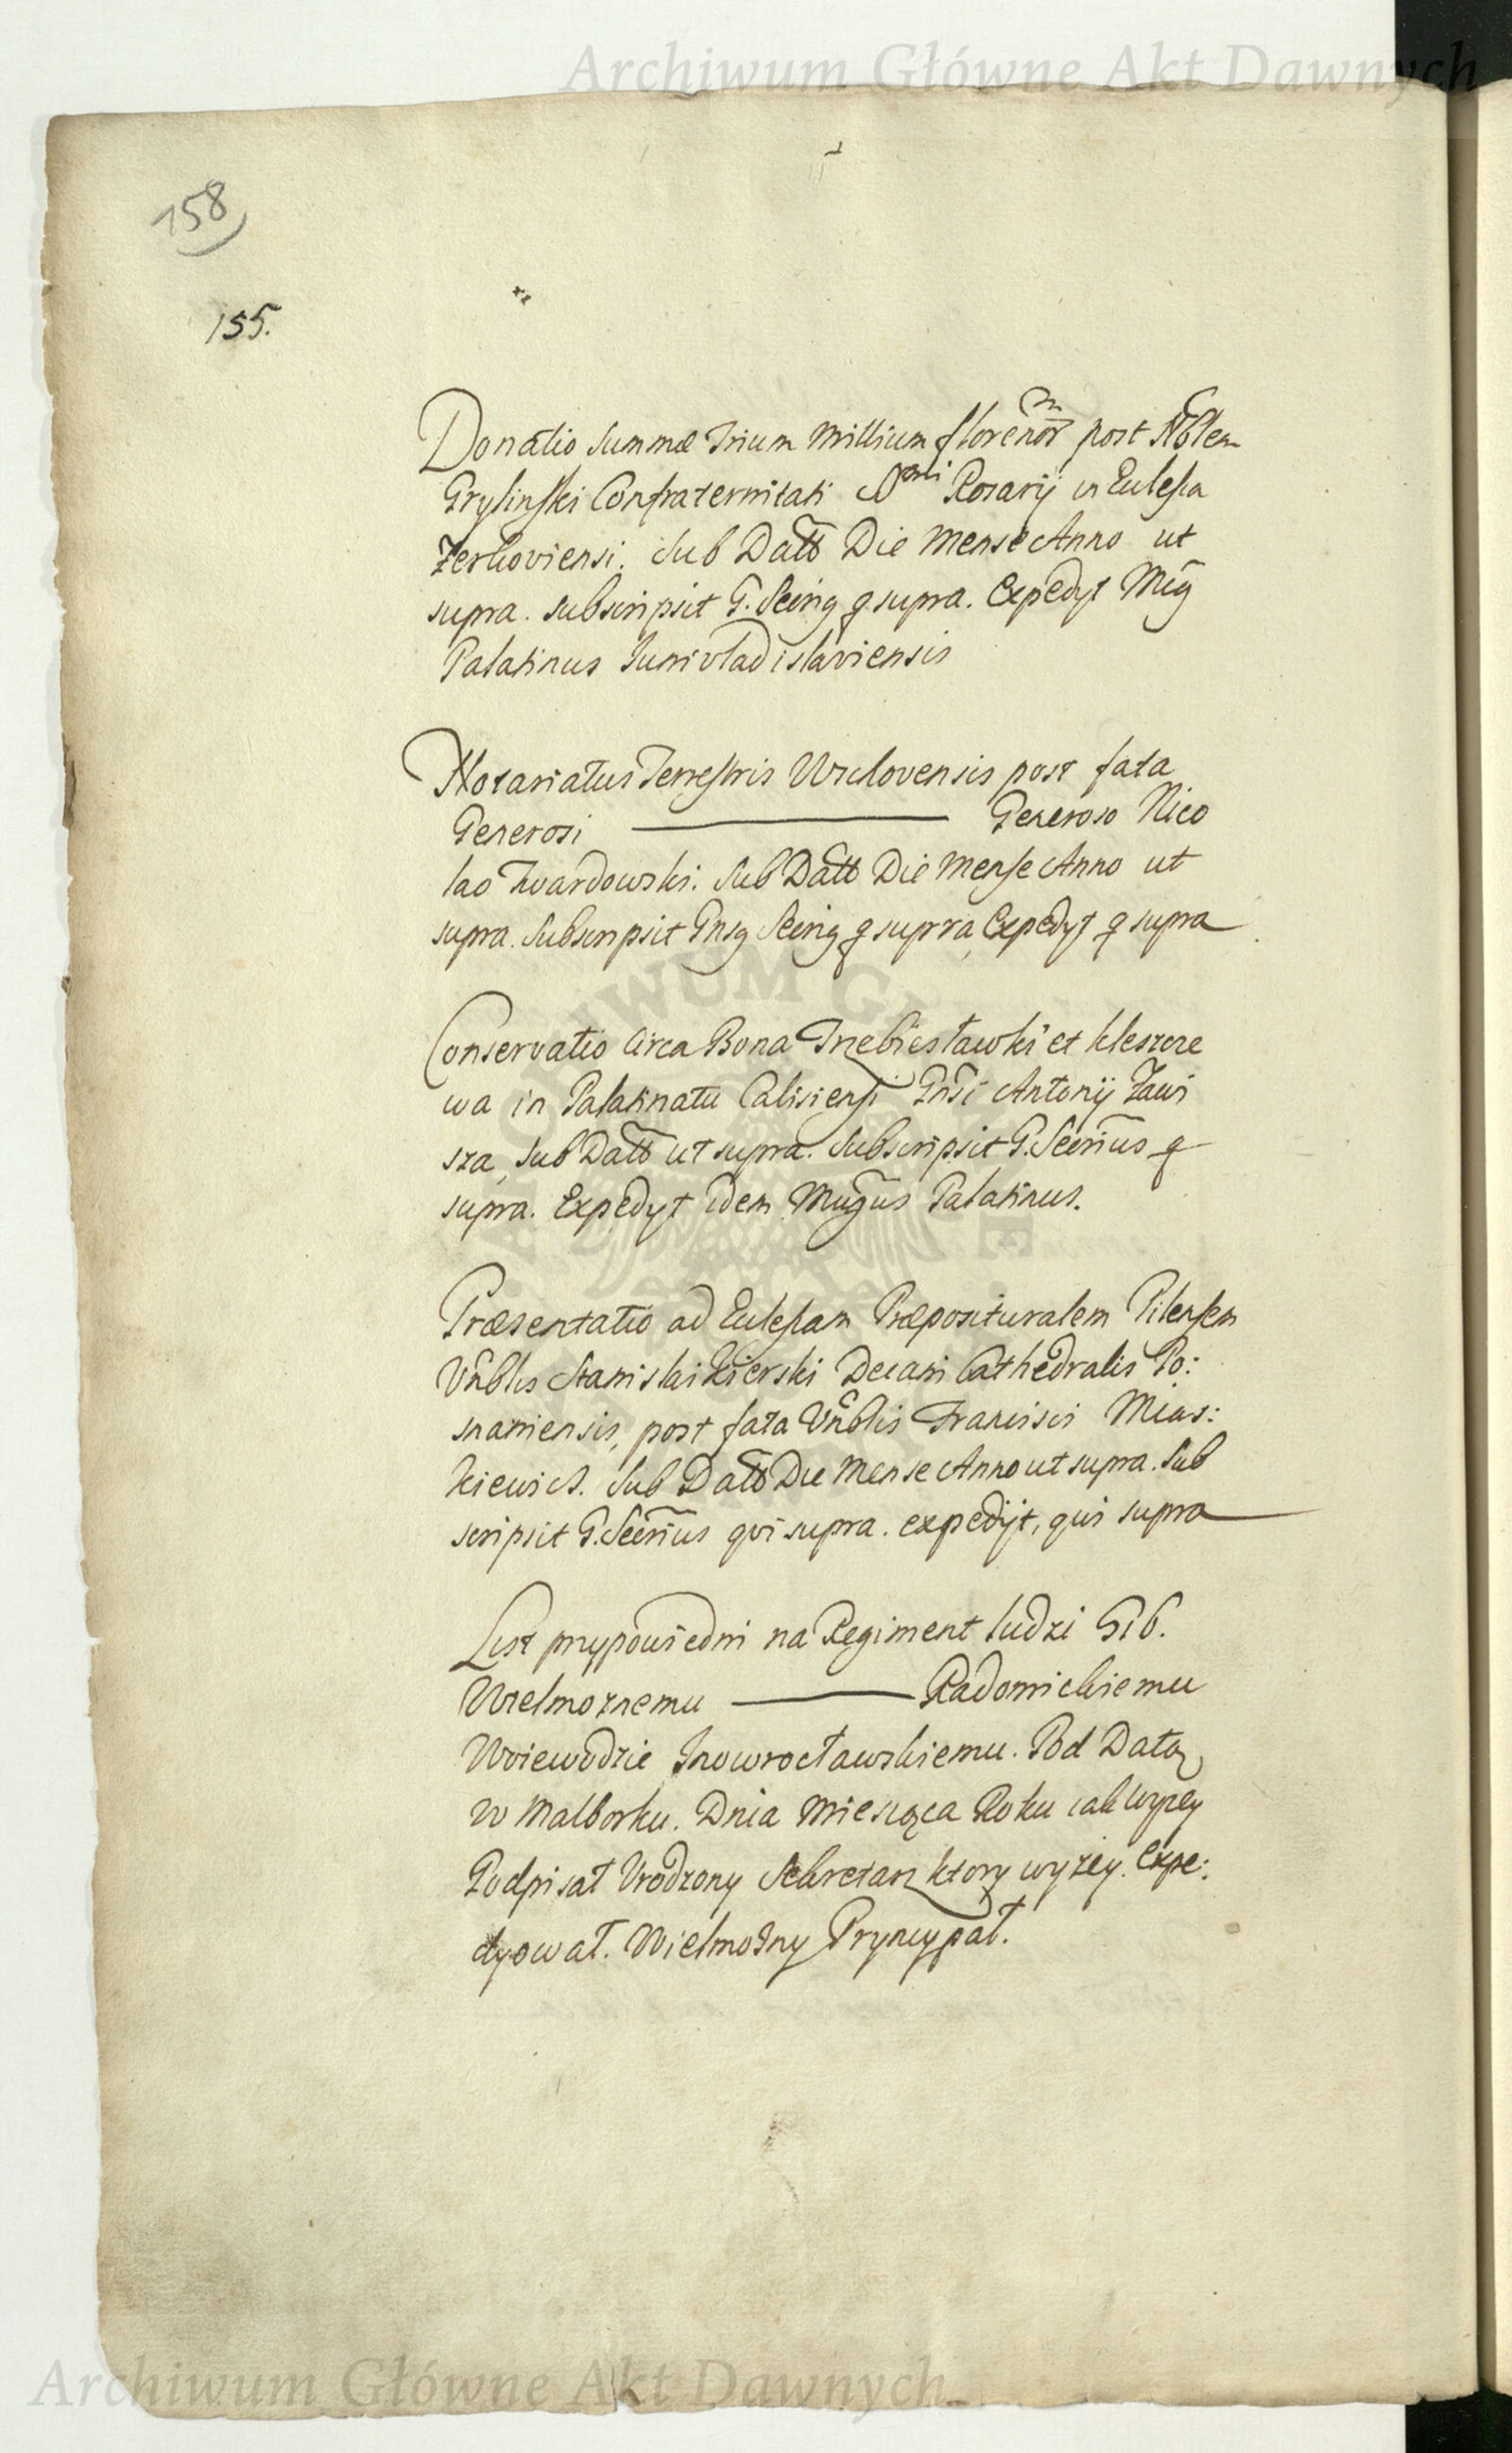 Archiwum Główne Akt Dawnych
158
155.
Donatio Summæ Trium Millium florenor post Nōblem
Grysinski Confraternitati Sssmi Rosarij in Ecclesia
Zerkoviensi. Sub Datō Die Mense Anno ut
supra. Subscripsit G. Secrig q supra. Expedyt Mḡ
Palatinus Junivladislaviensis
Notariatus Terrestris Wschovensis post fata
Generosi ——— Generoso Nico
lao Twardowski. Sub Datō Die Mense Anno ut
supra. Subscripsit Gnsg Secrig q supra, Expedyt q supra
Conservatio circa Bona Trzebiesławki et Kleszcze
wa in Palatinatu Calisiensi Gnsi Antonij Zawi
sza, Sub Datō ut supra. Subscripsit G. Secrīus q
supra. Expedyt idem Mugūs Palatinus.
Præsentatio ad Ecclesiam Præposituralem Pilensem
Vnblis Stanislai Kierski Decani Cathedralis Po:
snaniensis, post fata Vnblis Francisci Mias:
kiewicz. Sub Datō Die Mense Anno ut supra. Sub
scripsit G. Secrīus qvi supra. expedijt, qui supra
List przypowiedni na Regiment ludzi 516.
Wielmoznemu ——— Radomickiemu
Woiewodzie Inowrocławskiemu. Pod Datą
w Malborku. Dnia Miesiąca Roku iak wyzey
Podpisał Vrodzony Sekretarz ktory wyzey. Expe:
dyował. Wielmożny Pryncypał.
Archiwum Główne Akt Dawnych